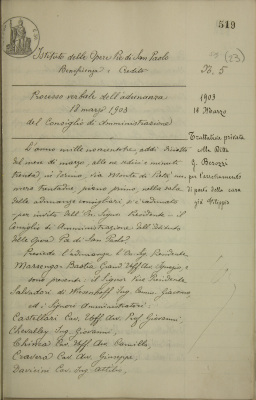 519
Istituto delle Opere Pie di San Paolo
Beneficenza e Credito
N. 5
Processo verbale dell'adunanza
18 marzo 1903
del Consiglio di Amministrazione
1903
18 Marzo
Trattativa privata
alla Ditta
Berozzi
per
di parte della casa
già
L'anno mille novecentotre, addì diciotto
del mese di marzo, alle ore dodici e minuti
trenta, in Torino, Via Monte di Pietà
numero trentadue piano primo, nella sala
delle adunanze consigliari si è radunato
per invito dell' Ill. Signor Presidente il
Consiglio di Amministrazione dell'Istituto
delle Opere Pie di San Paolo.
Presiede l'adunanza l' Ill. Sig. Presidente
Marsengo Bastia Grand' Uff. Av. Ignazio e
sono presenti il Signor Vice Presidente
Salvadori di Wiesenhoff Ing. Comm. Giacomo
ed i Signori Amministratori:
Castellari Cav. Uff. Av. Prof. Giovanni,
Chevalley Ing. Giovanni,
Chiesa Cav. Uff. Av. Camillo,
Cravero Cav. Av. Giuseppe,
Davicini Cav. Ing. Attilio,